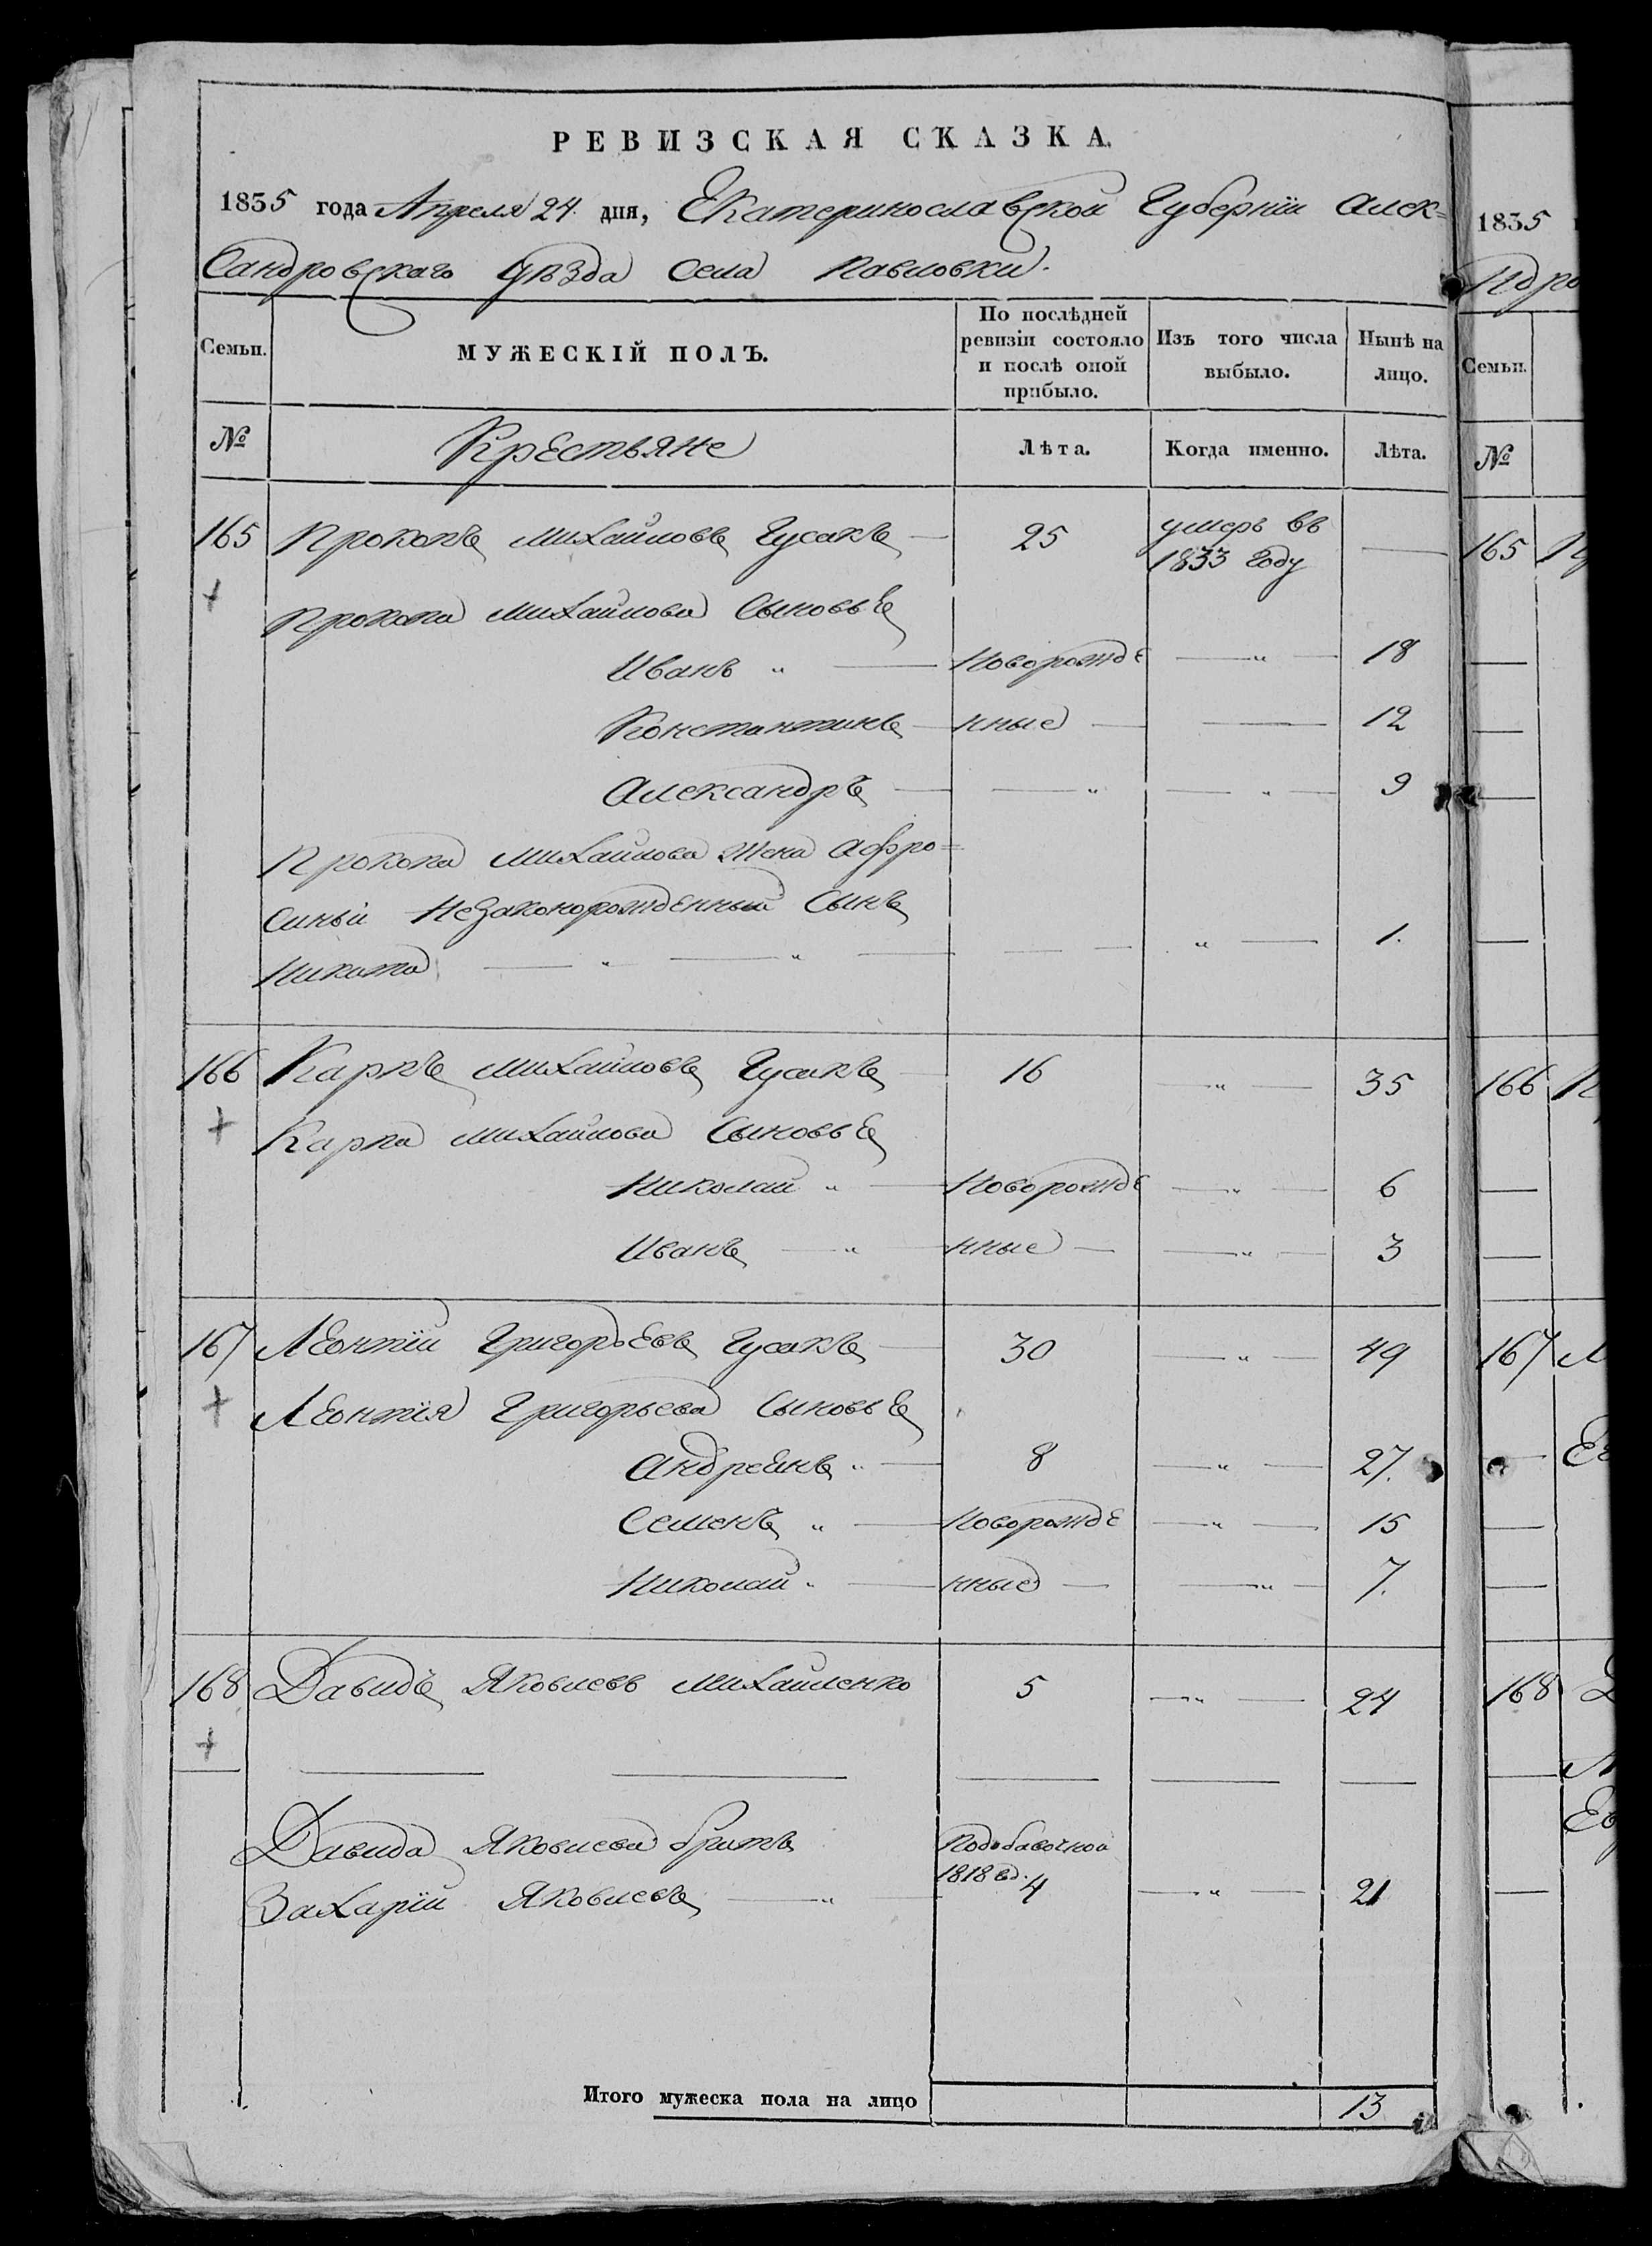 РЕВИЗСКАЯ СКАЗКА.
1835 года Апреля 24 дня, Екатеринославской Губернїи Алек=
сандровскаго Уѣзда Села Павловки.
Семьи.
МУЖЕСКІЙ ПОЛЪ.
По послѣдней ревизіи состояло и послѣ оной прибыло.
Изъ того числа выбыло.
Нынѣ на лицо.
№ Крестьяне Лѣта. Когда именно. Лѣта.
165 Прокопъ Михайловъ Гусакъ — 25 умеръ въ 1833 году —
+
Прокопа Михайлова Сыновье
Иванъ " — Новорожде — " — 18
Константинъ — нные — — 12
Александръ — — " — " — 9
Прокопа Михайлова Жена Афро=
синьи Незаконорожденный Сынъ
Никита — " — " — — — " — 1.
166 Карпъ Михайловъ Гусакъ — 16 — " — 35
+
Карпа Михайлова Сыновье
Николай " — Новорожде — " — 6
Иванъ — " — нные — — " — 3
167 Леонтїй Григорьевъ Гусакъ — 30 — " — 49
+
Леонтїя Григорьева Сыновье
Андреянъ " — 8 — " — 27.
Семенъ " — Новорожде — " — 15
Николай " — нные — — " — 7.
168 Давидъ Яковлевъ Михайленко 5 — " — 24
+
Давида Яковлева братъ Подобавочной
Захарїй Яковлевъ — " — 1818 4 — " — 21
Итого мужеска пола на лицо 13
1835
Семьи.
№
165
166
167
168